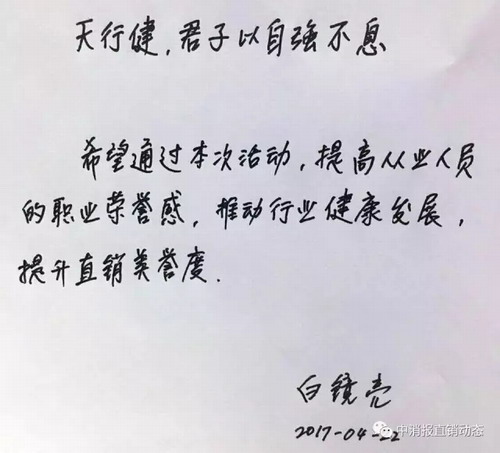 天行健,君子以自强不息
希望通过本次活动,提高从业人员
的职业荣誉感,推动行业健康发展,
提升直销美誉度.
白镜亮
2017-04-22
中消报直销动态